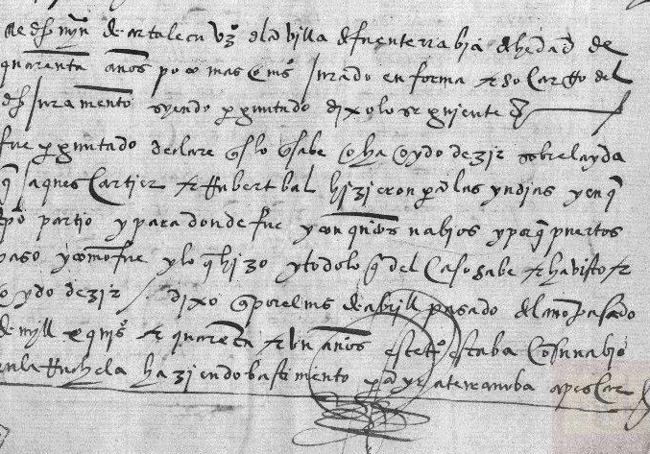 de dho myn de artalecu vzo dela villa de fuenterrabia de hedad de
quarenta años poco mas o ms jurado en forma e so cargo del
dho juramento syendo preguntado dixo lo seguiente
fue preguntado declare q es lo q sabe e ha oydo dezir sobre la yda
q jaques cartier e Rubertbal hizieron para las yndias y en q
tpo partio y para donde fue y con quantos nabios y por q puertos
paso y como fue y lo q hizo y todo lo q del caso sabe e ha visto e
oydo dezir / dixo q por el mes de abrill pasado del año pasado
de myll e quisº e quarenta e un años este tº estaba con su nabio
en la Rrochela haziendo bastimento para yr a terranoba a pescar